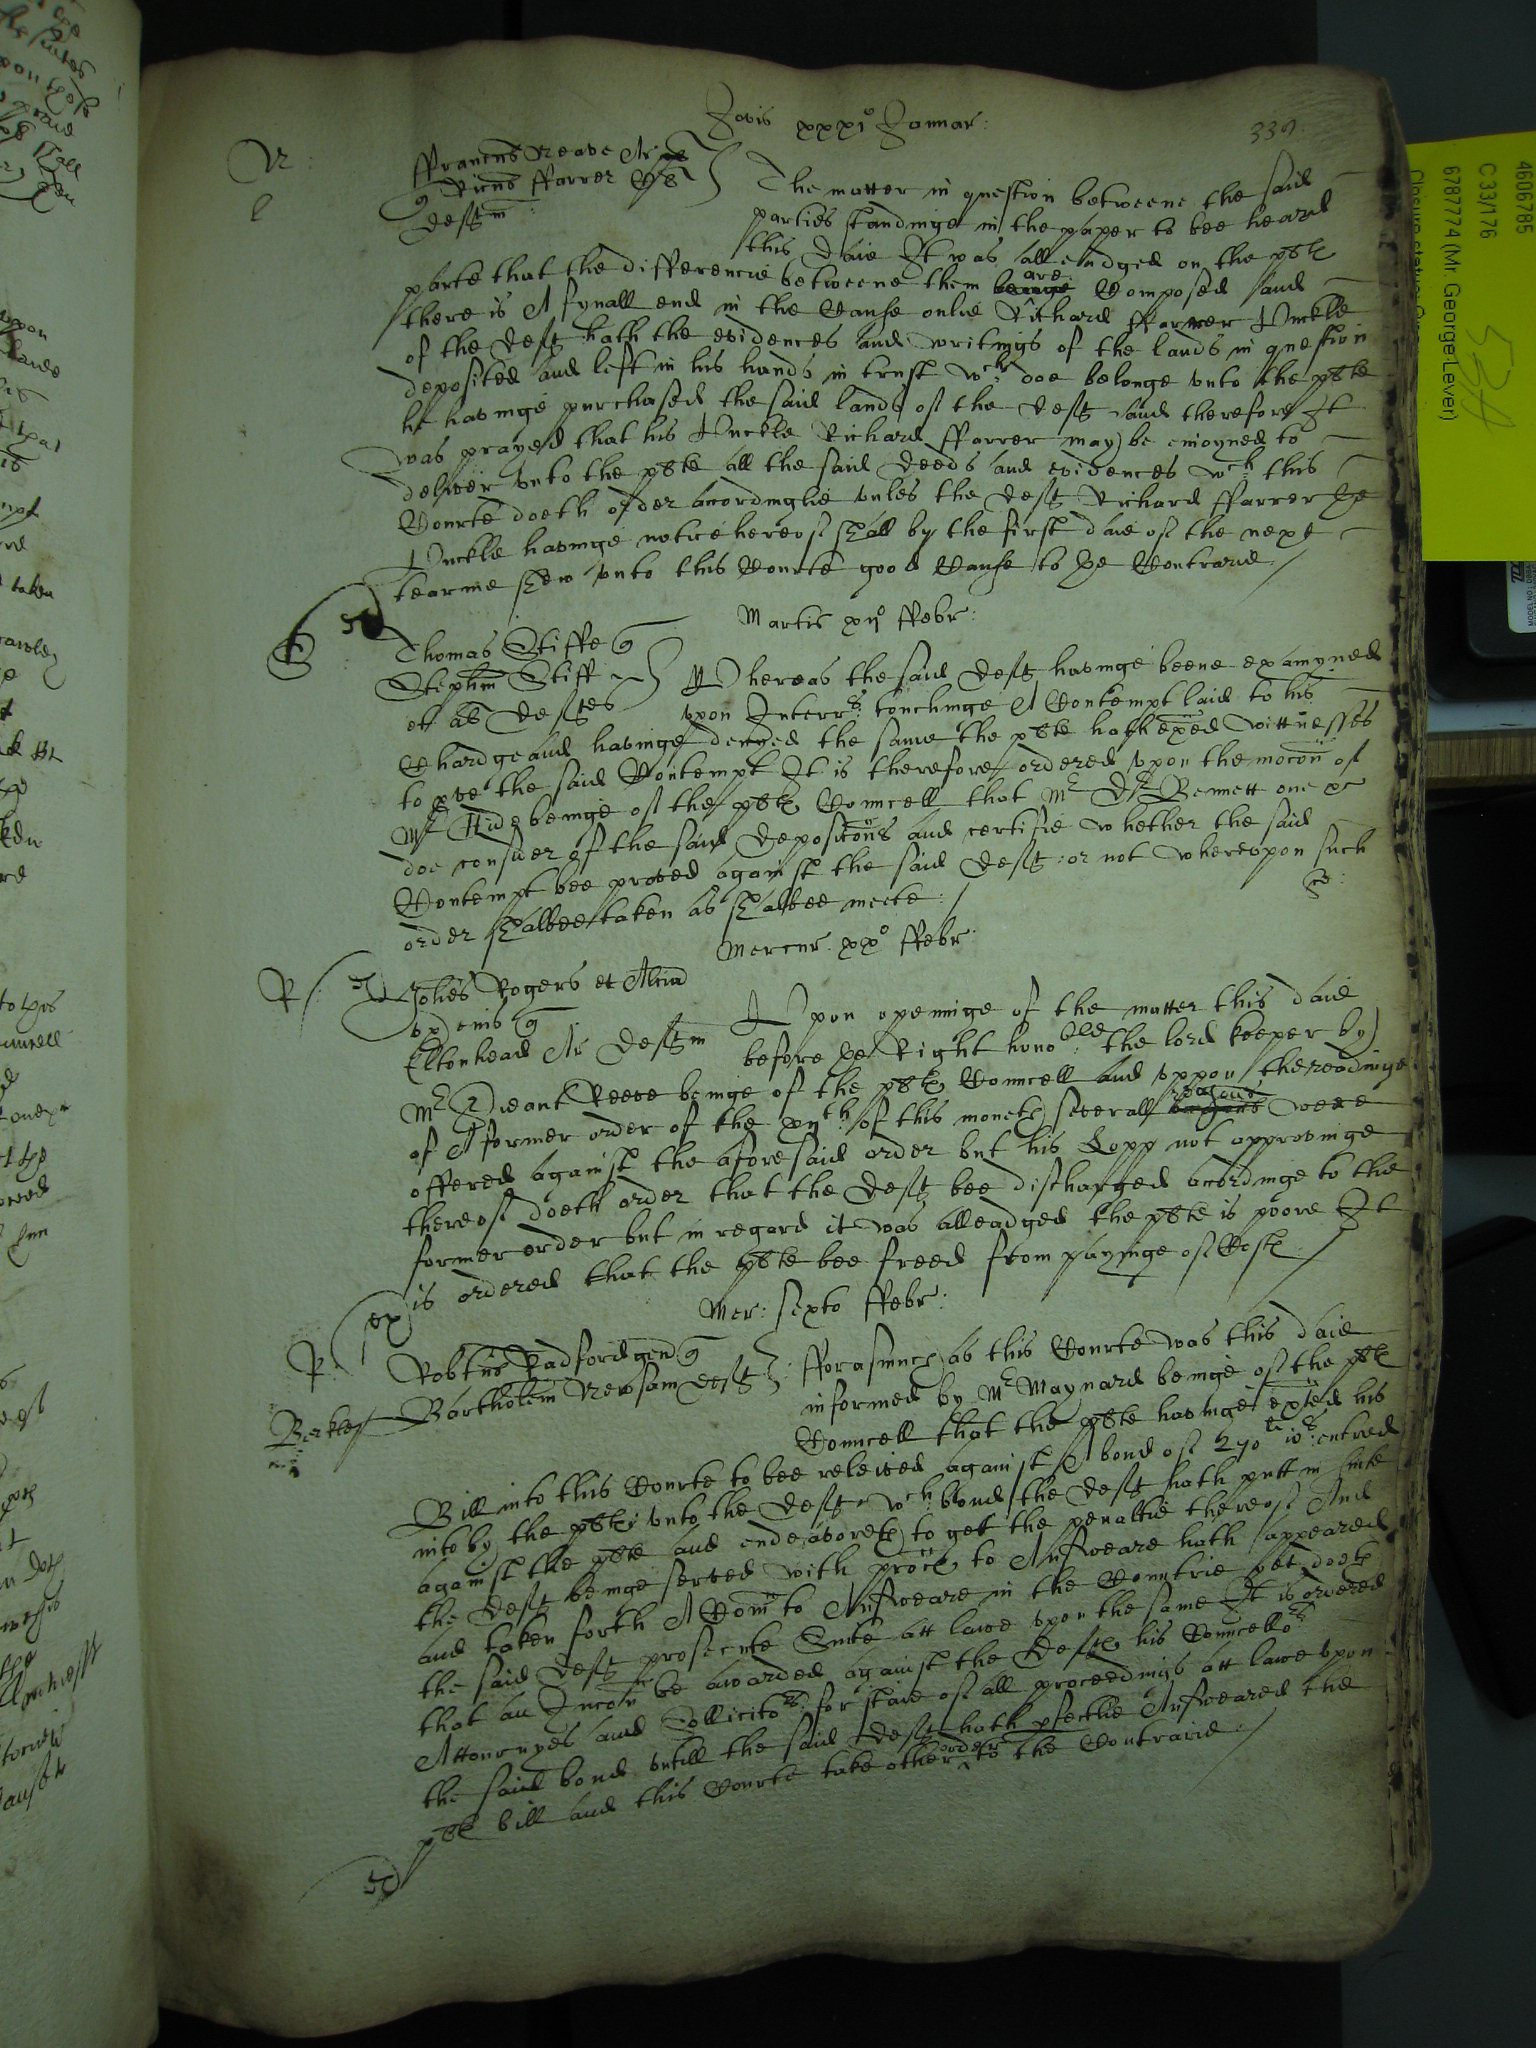 Jovis xxxi° Januar:
339
ffranciscus Neave Ar
Ricus ffarrer
deft
The matter in question betweene the said
parties standinge in the paper to bee heard
this daie It was alleadged on the plt
parte that the differencies betweene them are Composed and
there is A fynall end in the Cause onlie Richard ffarrer Vnckle
of the deft hath the evidences and writings of the lands in question
deposited and left in his hands in trust wch doe belonge vnto the plt
he havinge purchased the said lands of the deft and therefore It
was prayed that his Vnckle Richard ffarrer may be enioyned to
deliver vnto the plt all the said deeds and evidences wch this
Courte doeth order accordinglie vnles the deft Richard ffarrer the
Vnckle havinge notice hereof shall by the first daie of the next
tearme shew vnto this Courte good Cause to the Contrarie
Martis xij° ffebr:
Thomas Stiffe
Stephm Stiff
et al deftes
Whereas the said deft havinge beene examyned
vpon Interr: touchinge A Contempt laid to his
Chardge and havinge denyed the same the plt hath exed wittnesses
to pve the said Contempt It is therefore ordered vpon the mocon of
Mr Hide beinge of the plts Councell that Mr Dr Bennett one &c
doe consider of the said deposicons and certifie whether the said
Contempt bee proved against the said deft or not wherevpon such
order shalbee taken as shalbee meete
Mercur: xx° ffebr:
R
Johes Rogers et Alicia
vx eius
Eltonhead Ar deft
Vpon openinge of the matter this daie
before the Right hono ble the lord keeper by
Mr Reeve beinge of the plts Councell and vppon the readinge
of A former order of the xijth of this moneth severall reasons were
offered against the aforesaid order but his Lopp not approvinge
thereof doeth order that the deft bee discharged accordinge to the
former order but in regard it was alleadged the plt is poore It
is ordered that the plt bee freed from payinge of Costs
Mer: sexto ffebr:
R
Robtus Radford gen
Bartholm Newsam deft
Berkes
fforasmuch as this Courte was this daie
informed by Mr Maynard beinge of the plts
Councell that the plt havinge exhted his
Bill into this Courte to bee releived against A bond of entred
into by the plt vnto the deft wch bond the deft hath putt in suite
against the plt and endeavoreth to gett the penaltie thereof And
the deft beinge served with proces to Answeare hath appeared
and taken forth A Comn to Answeare in the Countrie yet doeth
the said deft prosecute Suite att lawe vpon the same It is ordered
that an Iniccon be awarded against the deft his Councello
Attorneyes and Sollicito for staie of all proceedings att lawe vpon
the said bond vntill the said deft hath pfectlie Answeared the
plts bill and this Courte take other order to the Contrarie
4606785
C 33/176
6787774 (Mr. George Lever)